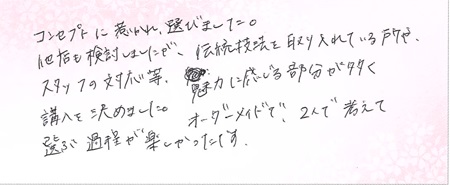 コンセプトに惹かれ、選びました。
他店も検討しましたが、伝統技法を取り入れている所や、
スタッフの対応等、魅力に感じる部分が多く
購入を決めました。オーダーメイドで、2人で考えて
選ぶ過程が楽しかったです。